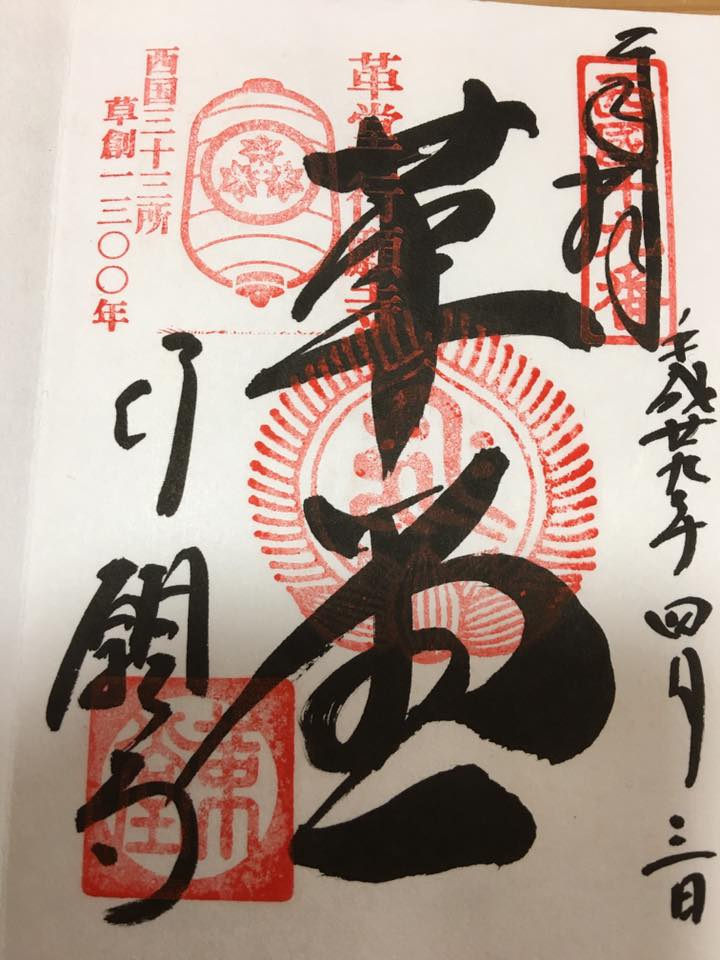 平成廿九年四月三日
奉拝
西国十九番
革堂
革堂行願寺
西国三十三所
草創一三〇〇年
行願寺